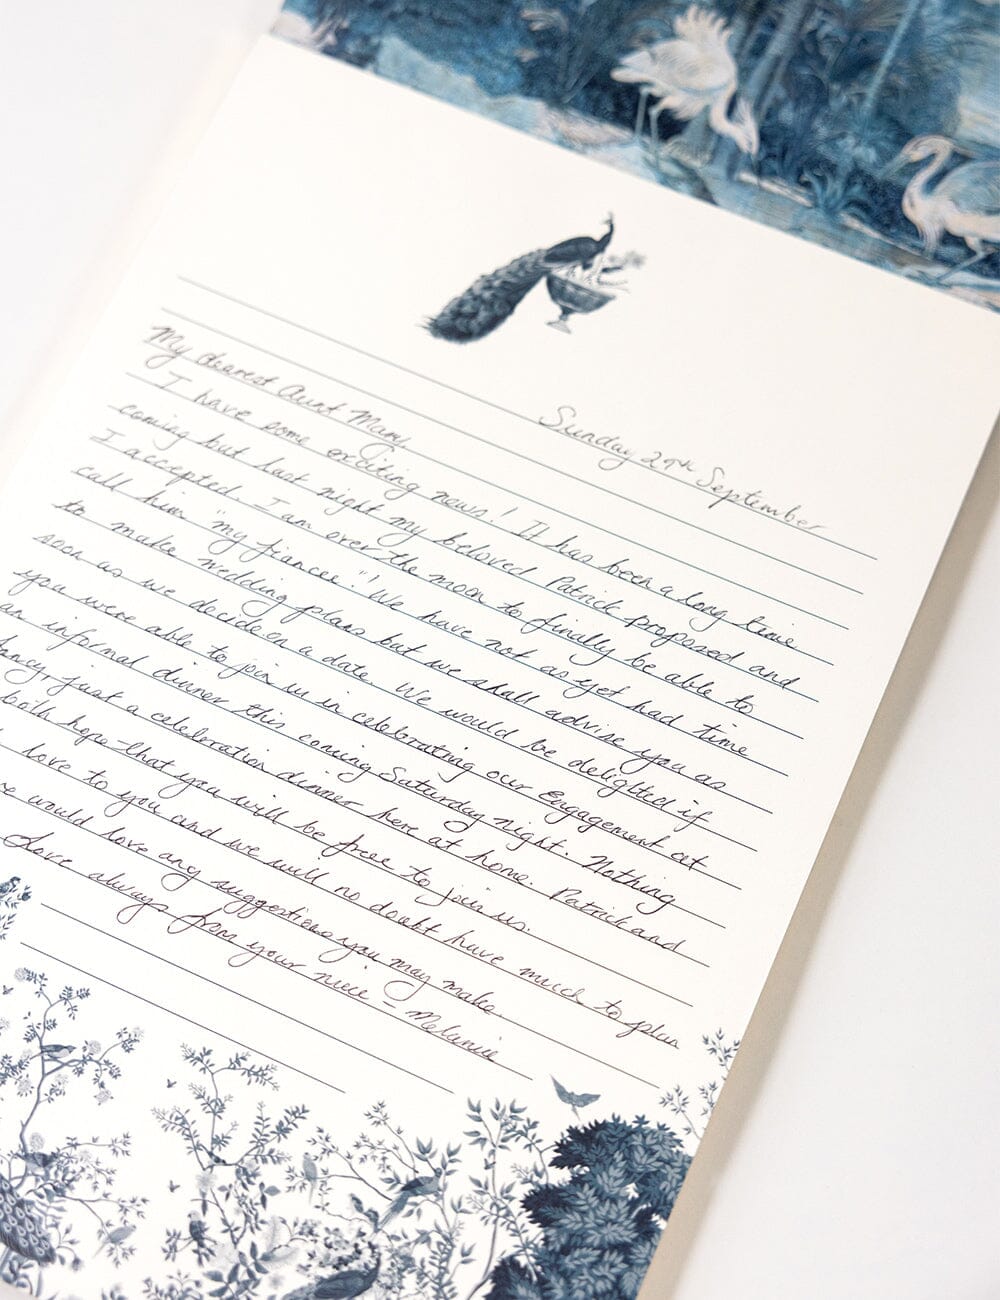 Sunday 29th September
My dearest Aunt Mary,
I have some exciting news! It has been a long time
coming but last night my beloved Patrick proposed and
I accepted. I am over the moon to finally be able to
call him "my fiancee." We have not as yet had time
to make wedding plans but we shall advise you as
soon as we decide on a date. We would be delighted if
you were able to join us in celebrating our engagement at
an informal dinner this coming Saturday night. Nothing
fancy, just a celebration dinner here at home. Patrick and
both hope that you will be free to join us.
love to you and we will no doubt have much to plan
would love any suggestions you may make
Love always from your niece - Melanie